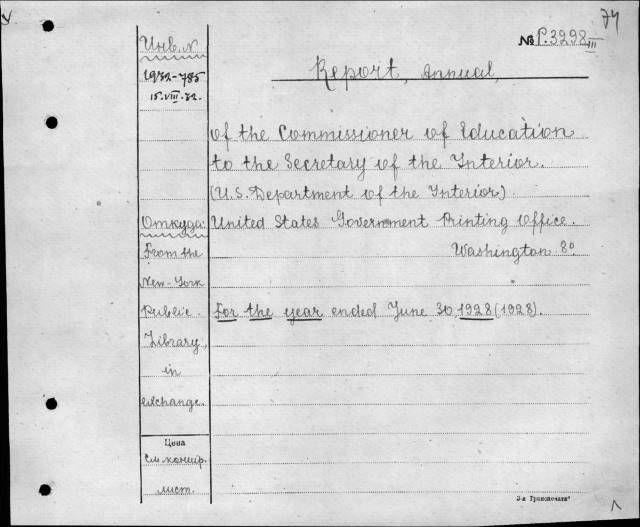 74
Инв. N
№ P.3298 III
Report, Annual,
1932-785
15.VIII.32.
of the Commissioner of Education
to the Secretary of the Interior.
(U.S. Department of the Interior)
Откуда:
United States Government Printing Office.
From the
Washington 8°
New-York
Public
For the year ended June 30, 1928 (1928).
Library,
in
exchange.
Цена
См. концр.
лист.
3-я Транспечати"